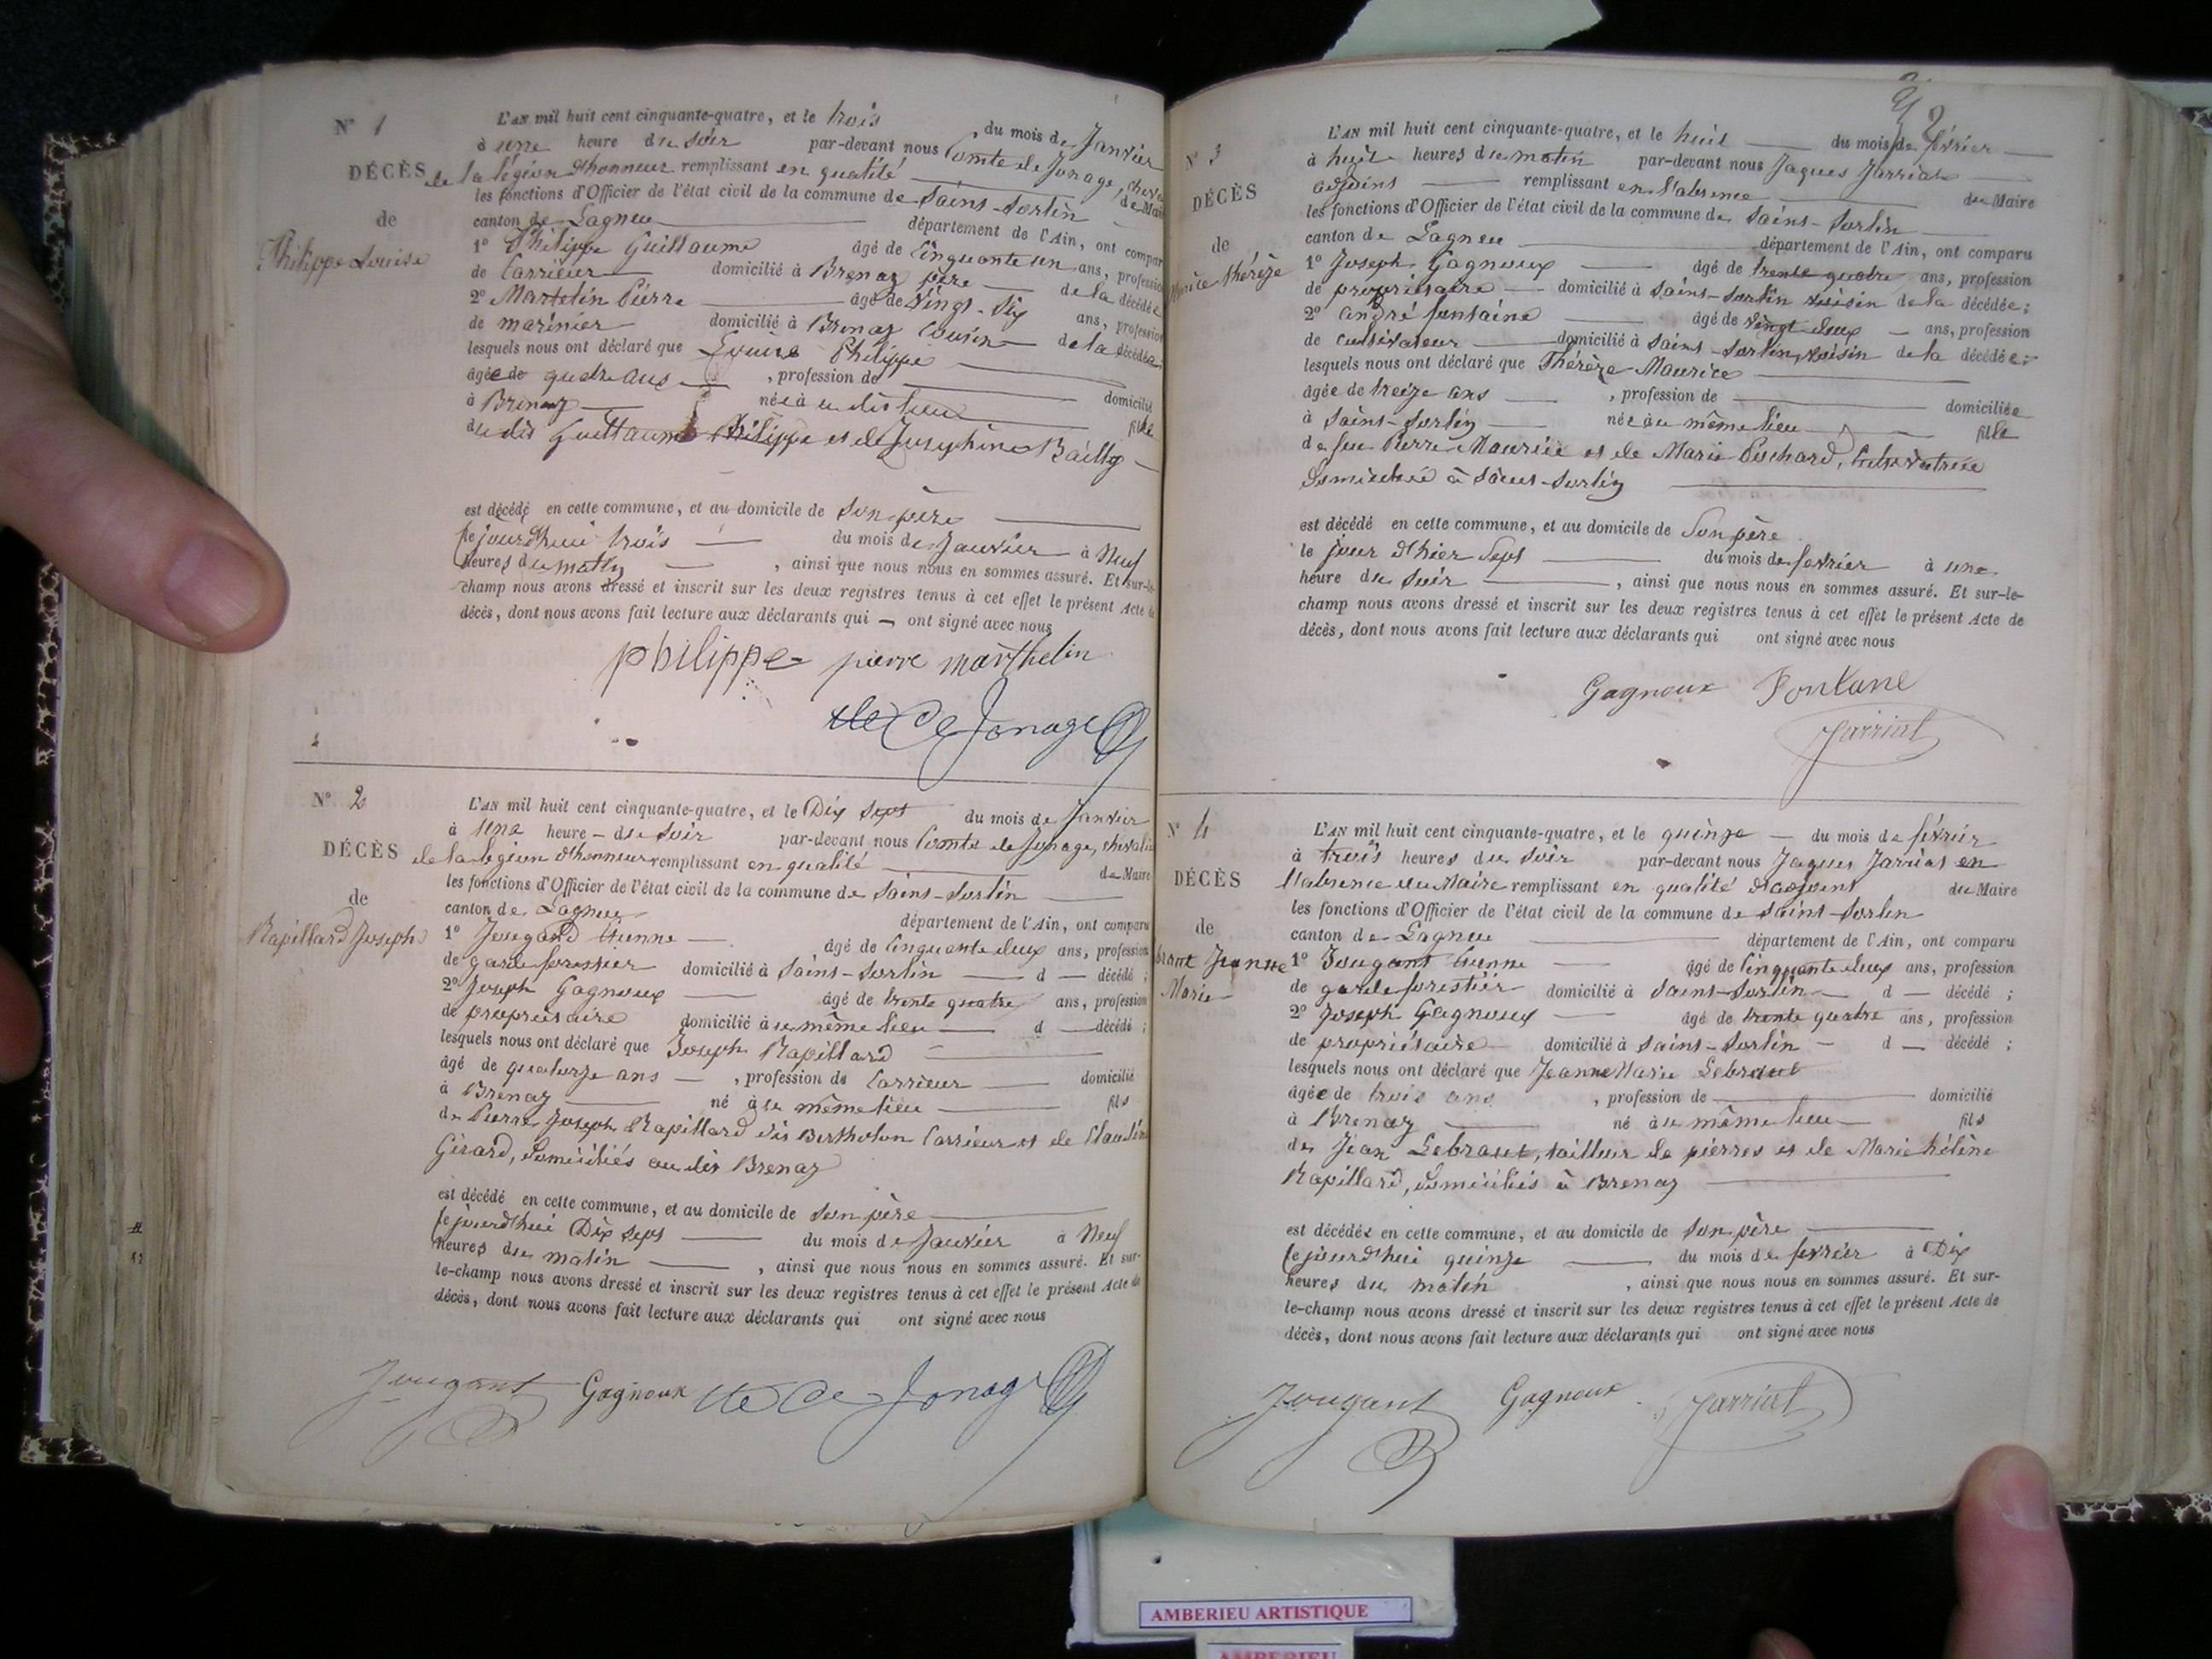 N° 1
L'AN mil huit cent cinquante-quatre, et le trois du mois de Janvier
à une heure du soir par-devant nous Comte de Jonage, cheva
DÉCÈS
de la légion d'honneur remplissant en qualité de Mai
les fonctions d'Officier de l'état civil de la commune de Saint-Sorlin
de
canton de Lagneu département de l'Ain, ont compar
Philippe Louise
1° Philippe Guillaume âgé de Cinquante un ans, professio
de Carrieur domicilié à Brenaz père de la décédée
2° Martelin Pierre âgé de Vingt-Six ans, profession
de marinier domicilié à Brenaz Cousin de la décédée
lesquels nous ont déclaré que Louise Philippe
âgée de quatre ans , profession de domicilié
à Brenaz née à u dit lieu fille
du dit Guillaume Philippe et de Josephine Bailly
est décédé en cette commune, et au domicile de Son père
ce jourd'hui trois du mois de Janvier à Neuf
heures du matin , ainsi que nous nous en sommes assuré. Et sur-le-
champ nous avons dressé et inscrit sur les deux registres tenus à cet effet le présent Acte de
décès, dont nous avons fait lecture aux déclarants qui ont signé avec nous
philippe pierre marthelin
de Jonage
N° 2
L'AN mil huit cent cinquante-quatre, et le Dix Sept du mois de Janvier
à une heure du Soir par-devant nous Comte de Jonage, chevali
DÉCÈS
de la légion d'honneur remplissant en qualité de Maire
les fonctions d'Officier de l'état civil de la commune de Saint-Sorlin
de
canton de Lagneu département de l'Ain, ont comparu
Rapillard Joseph
1° Jougand Etienne âgé de Cinquante deux ans, profession
de garde forestier domicilié à Saint-Sorlin d décédé ;
2° Joseph Gagnoux âgé de trente quatre ans, profession
de propriétaire domicilié à u même lieu d décédé ;
lesquels nous ont déclaré que Joseph Rapillard
âgé de quatorze ans , profession de Carrieur domicilié
à Brenaz né à u même lieu fils
de Pierre Joseph Rapillard dit Bertholon Carrieur et de Claudin
Girard, domiciliés au dit Brenaz
est décédé en cette commune, et au domicile de Son père
ce jourd'hui Dix Sept du mois de Janvier à Neuf
heures du matin , ainsi que nous nous en sommes assuré. Et sur-
le-champ nous avons dressé et inscrit sur les deux registres tenus à cet effet le présent Acte de
décès, dont nous avons fait lecture aux déclarants qui ont signé avec nous
Jougant Gagnoux de Jonage
N° 3
L'AN mil huit cent cinquante-quatre, et le huit du mois de février
à huit heures du matin par-devant nous Jaques Jarriat
DÉCÈS
adjoint remplissant en l'absence du Maire
les fonctions d'Officier de l'état civil de la commune de Saint-Sorlin
de
canton de Lagneu département de l'Ain, ont comparu
urice Thérèze
1° Joseph Gagnoux âgé de trente quatre ans, profession
de propriétaire domicilié à Saint-Sorlin voisin de la décédée ;
2° andré fontaine âgé de vingt deux ans, profession
de cultivateur domicilié à Saint-Sorlin, voisin de la décédée ;
lesquels nous ont déclaré que Thérèze Maurice
âgée de treize ans , profession de domiciliée
à Saint-Sorlin née au même lieu fille
de feu Pierre Maurice et de Marie Puchard, Cultivatrice
Domiciliée à Saint-Sorlin
est décédé en cette commune, et au domicile de Son père
le jour d'hier Sept du mois de fevrier à une
heure du Soir , ainsi que nous nous en sommes assuré. Et sur-le-
champ nous avons dressé et inscrit sur les deux registres tenus à cet effet le présent Acte de
décès, dont nous avons fait lecture aux déclarants qui ont signé avec nous
Gagnoux Fontane
Jarriat
N° 4
L'AN mil huit cent cinquante-quatre, et le quinze du mois de février
à trois heures du Soir par-devant nous Jaques Jarriat en
DÉCÈS
l'absence du Maire remplissant en qualité d'adjoint du Maire
les fonctions d'Officier de l'état civil de la commune de Saint-Sorlin
de
canton de Lagneu département de l'Ain, ont comparu
braut Jeanne
Marie
1° Jougant Etienne âgé de Cinquante deux ans, profession
de garde forestier domicilié à Saint-Sorlin d décédé ;
2° Joseph Gagnoux âgé de trente quatre ans, profession
de propriétaire domicilié à Saint-Sorlin d décédé ;
lesquels nous ont déclaré que Jeanne Marie Lebraut
âgée de trois ans , profession de domicilié
à Brenaz né à u même lieu fils
de Jean Lebraut, tailleur de pierres et de Marie hélène
Rapillard, domiciliés à Brenaz
est décédée en cette commune, et au domicile de Son père
ce jourd'hui quinze du mois de fevrier à Dix
heures du matin , ainsi que nous nous en sommes assuré. Et sur-
le-champ nous avons dressé et inscrit sur les deux registres tenus à cet effet le présent Acte de
décès, dont nous avons fait lecture aux déclarants qui ont signé avec nous
Jougant Gagnoux Jarriat
AMBERIEU ARTISTIQUE
AMBERIEU